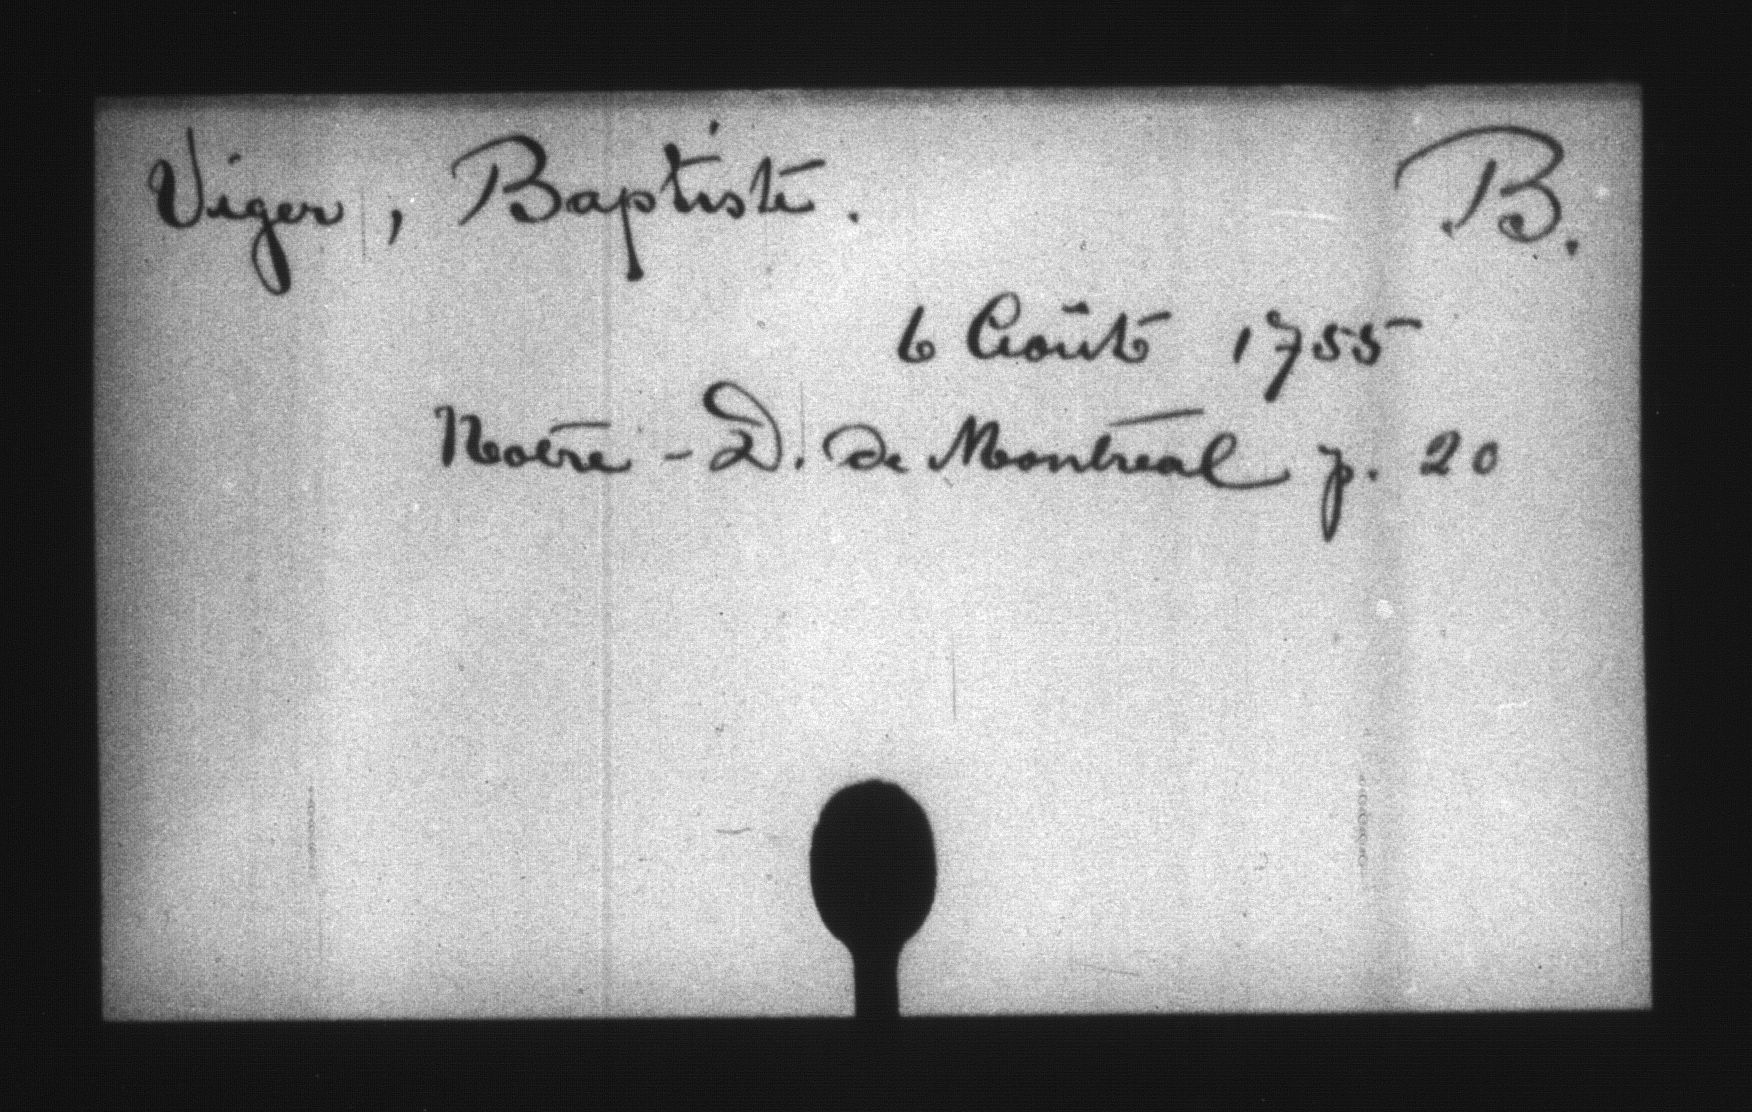 Viger, Baptiste. B.
6 Août 1755
Notre-D. de Montreal p. 20